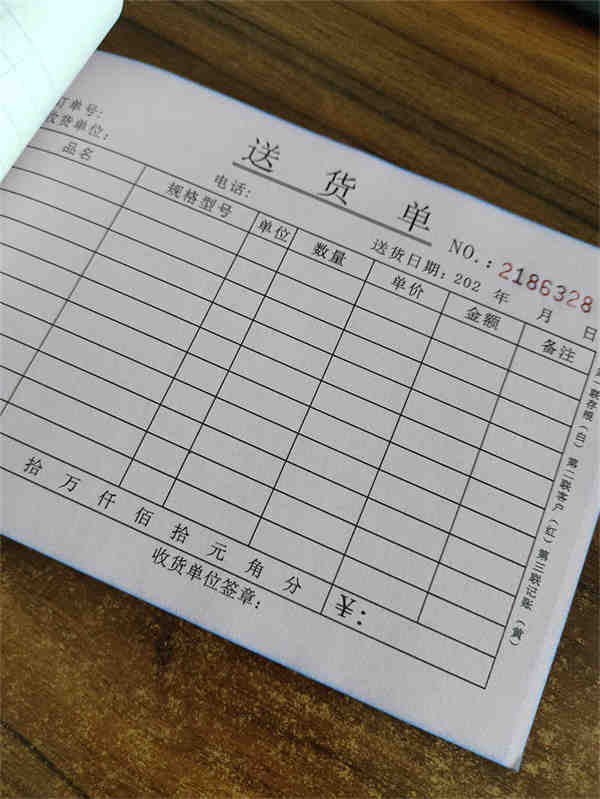 送货单
NO.: 2186328
订单号:
收货单位:
电话:
送货日期: 202 年 月 日
品名 规格型号 单位 数量 单价 金额 备注
拾 万 仟 佰 拾 元 角 分 ¥:
收货单位签章:
第一联存根(白) 第二联客户(红) 第三联记账(黄)